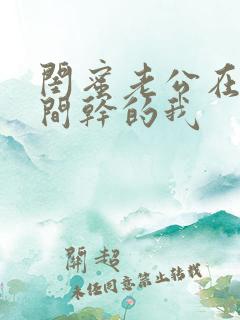 閨蜜老公在
間幹的我
開超
未经同意禁止转载